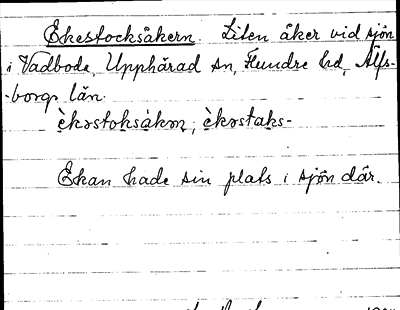 Ekestocksåkern. Liten åker vid sjön
i Vadbode, Upphärad sn, Flundre hd, Älfs-
-borgs län.
èkɘstoksàkɘn, èkɘstaks-
Ekan hade sin plats i sjön där.